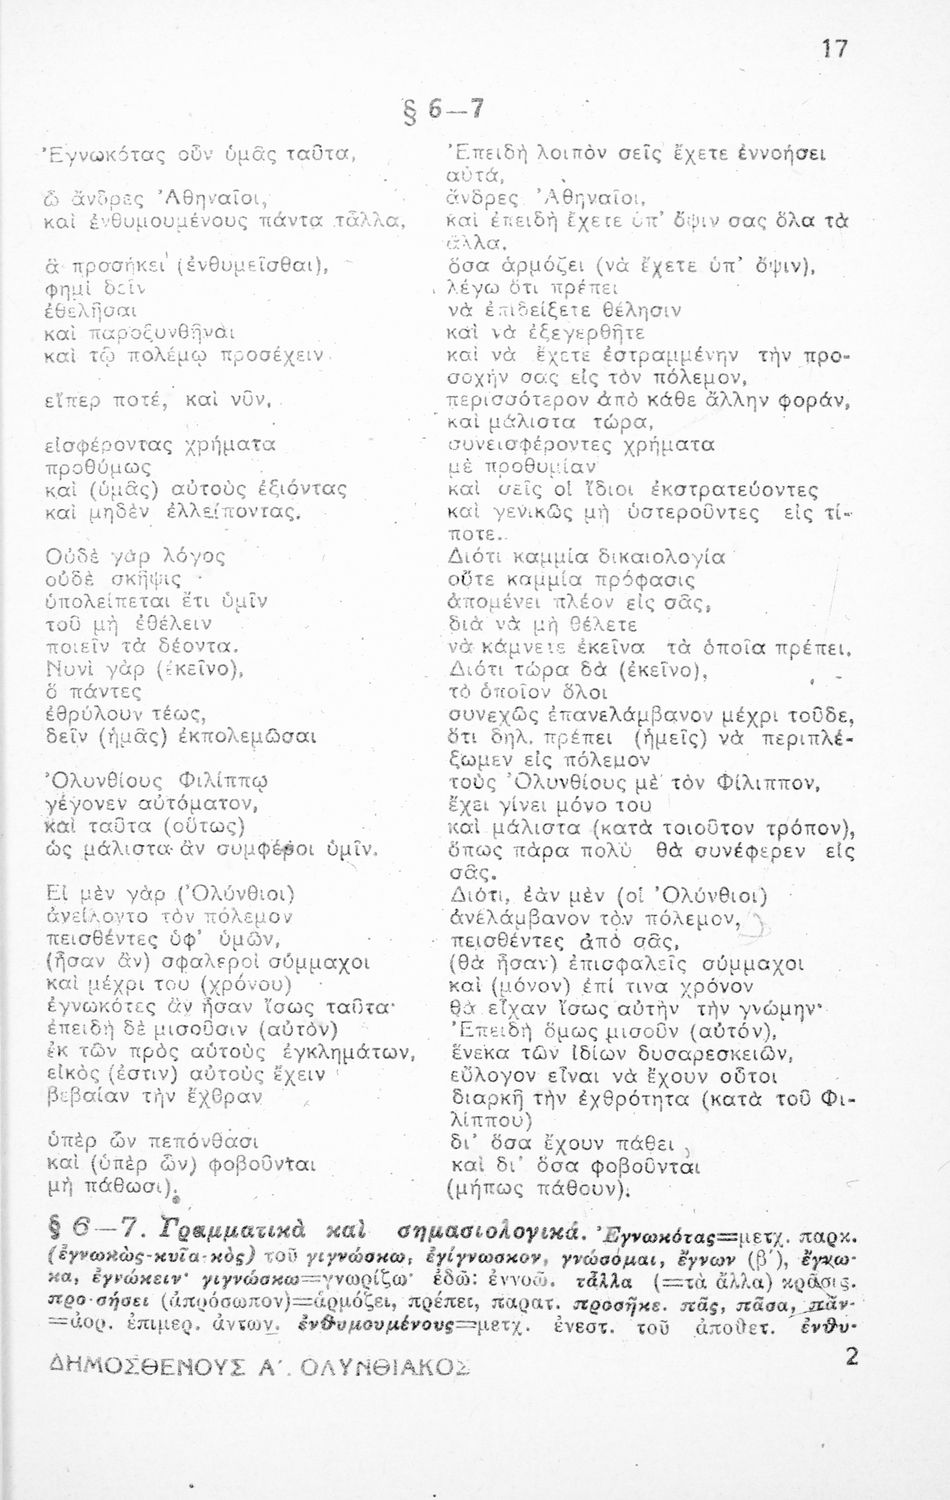 17
§ 6—7
Ἐγνωκότας οὖν ὑμᾶς ταῦτα,
ὦ ἄνδρες Ἀθηναῖοι,
καὶ ἐνθυμουμένους πάντα τἆλλα,
ἃ προσήκει (ἐνθυμεῖσθαι),
φημὶ δεῖν
ἐθελῆσαι
καὶ παροξυνθῆναι
καὶ τῷ πολέμῳ προσέχειν
εἴπερ ποτέ, καὶ νῦν,
εἰσφέροντας χρήματα
προθύμως
καὶ (ὑμᾶς) αὐτοὺς ἐξιόντας
καὶ μηδὲν ἐλλείποντας.
Οὐδὲ γὰρ λόγος
οὐδὲ σκῆψις
ὑπολείπεται ἔτι ὑμῖν
τοῦ μὴ ἐθέλειν
ποιεῖν τὰ δέοντα.
Νυνὶ γὰρ (ἐκεῖνο),
ὃ πάντες
ἐθρύλουν τέως,
δεῖν (ἡμᾶς) ἐκπολεμῶσαι
Ὀλυνθίους Φιλίππῳ
γέγονεν αὐτόματον,
καὶ ταῦτα (οὕτως)
ὡς μάλιστα ἂν συμφέροι ὑμῖν.
Εἰ μὲν γὰρ (Ὀλύνθιοι)
ἀνείλοντο τὸν πόλεμον
πεισθέντες ὑφ' ὑμῶν,
(ἦσαν ἂν) σφαλεροὶ σύμμαχοι
καὶ μέχρι του (χρόνου)
ἐγνωκότες ἂν ἦσαν ἴσως ταῦτα·
ἐπειδὴ δὲ μισοῦσιν (αὐτὸν)
ἐκ τῶν πρὸς αὐτοὺς ἐγκλημάτων,
εἰκὸς (ἐστιν) αὐτοὺς ἔχειν
βεβαίαν τὴν ἔχθραν
ὑπὲρ ὧν πεπόνθασι
καὶ (ὑπὲρ ὧν) φοβοῦνται
μὴ πάθωσι).
Ἐπειδὴ λοιπὸν σεῖς ἔχετε ἐννοήσει
αὐτά,
ἄνδρες Ἀθηναῖοι,
καὶ ἐπειδὴ ἔχετε ὑπ' ὄψιν σας ὅλα τὰ
ἄλλα,
ὅσα ἁρμόζει (νὰ ἔχετε ὑπ' ὄψιν),
λέγω ὅτι πρέπει
νὰ ἐπιδείξετε θέλησιν
καὶ νὰ ἐξεγερθῆτε
καὶ νὰ ἔχετε ἐστραμμένην τὴν προ-
σοχήν σας εἰς τὸν πόλεμον,
περισσότερον ἀπὸ κάθε ἄλλην φοράν,
καὶ μάλιστα τώρα,
συνεισφέροντες χρήματα
μὲ προθυμίαν
καὶ σεῖς οἱ ἴδιοι ἐκστρατεύοντες
καὶ γενικῶς μὴ ὑστεροῦντες εἰς τί-
ποτε.
Διότι καμμία δικαιολογία
οὔτε καμμία πρόφασις
ἀπομένει πλέον εἰς σᾶς,
διὰ νὰ μὴ θέλετε
νὰ κάμνετε ἐκεῖνα τὰ ὁποῖα πρέπει.
Διότι τώρα δὰ (ἐκεῖνο),
τὸ ὁποῖον ὅλοι
συνεχῶς ἐπανελάμβανον μέχρι τοῦδε,
ὅτι δηλ. πρέπει (ἡμεῖς) νὰ περιπλέ-
ξωμεν εἰς πόλεμον
τοὺς Ὀλυνθίους μὲ τὸν Φίλιππον,
ἔχει γίνει μόνο του
καὶ μάλιστα (κατὰ τοιοῦτον τρόπον),
ὅπως πάρα πολὺ θὰ συνέφερεν εἰς
σᾶς.
Διότι, ἐὰν μὲν (οἱ Ὀλύνθιοι)
ἀνελάμβανον τὸν πόλεμον,
πεισθέντες ἀπὸ σᾶς,
(θὰ ἦσαν) ἐπισφαλεῖς σύμμαχοι
καὶ (μόνον) ἐπί τινα χρόνον
θὰ εἶχαν ἴσως αὐτὴν τὴν γνώμην·
Ἐπειδὴ ὅμως μισοῦν (αὐτόν),
ἕνεκα τῶν ἰδίων δυσαρεσκειῶν,
εὔλογον εἶναι νὰ ἔχουν οὗτοι
διαρκῆ τὴν ἐχθρότητα (κατὰ τοῦ Φι-
λίππου)
δι' ὅσα ἔχουν πάθει
καὶ δι' ὅσα φοβοῦνται
(μήπως πάθουν).
§ 6—7. Γραμματικὰ καὶ σημασιολογικά. Ἐγνωκότας=μετχ. παρκ.
(ἐγνωκὼς-κυῖα-κὸς) τοῦ γιγνώσκω, ἐγίγνωσκον, γνώσομαι, ἔγνων (β'), ἔγνω-
κα, ἐγνώκειν· γιγνώσκω=γνωρίζω· ἐδῶ: ἐννοῶ. τἆλλα (=τὰ ἄλλα) κρᾶσις.
προ-σήκει (ἀπρόσωπον)=ἁρμόζει, πρέπει, παρατ. προσῆκε. πᾶς, πᾶσα, πᾶν·
=ἀορ. ἐπιμερ. ἀντων. ἐνθυμουμένους=μετχ. ἐνεστ. τοῦ ἀποθετ. ἐνθυ-
ΔΗΜΟΣΘΕΝΟΥΣ Α΄. ΟΛΥΝΘΙΑΚΟΣ
2